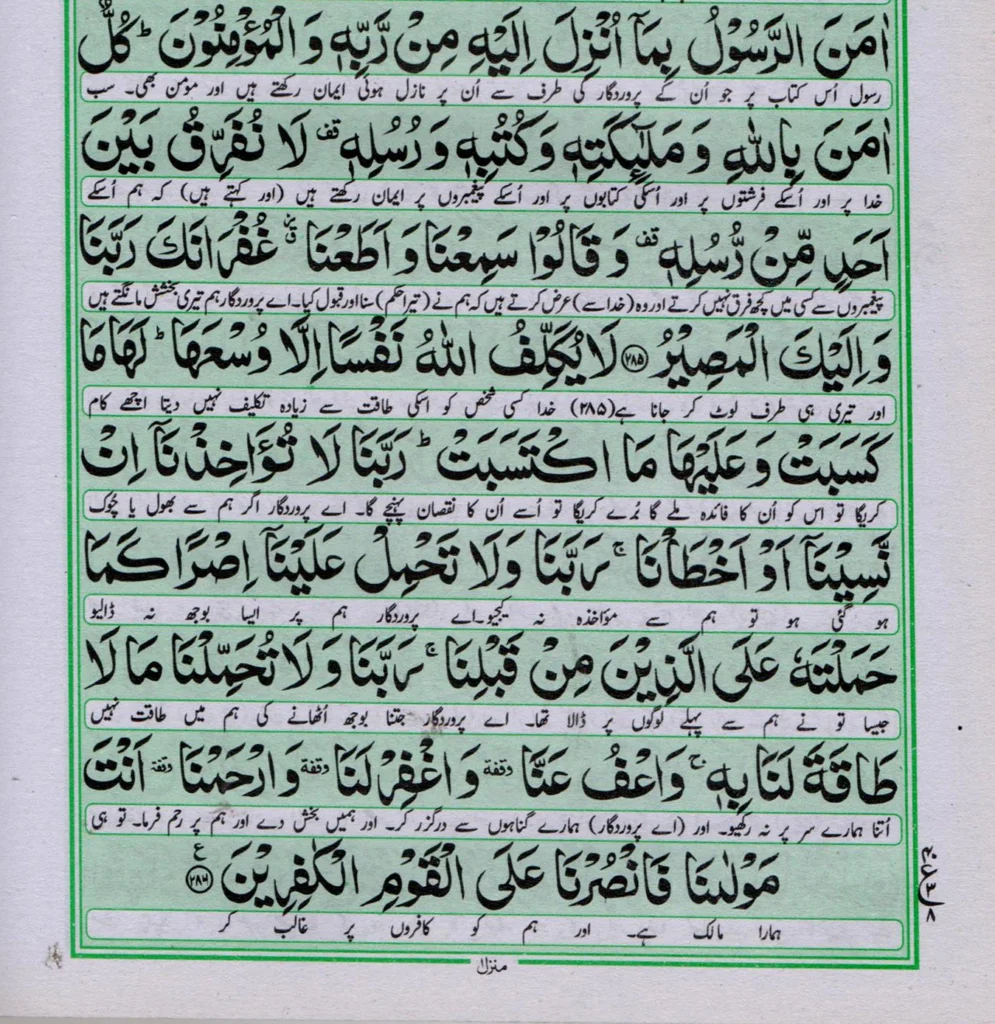 اٰمَنَ الرَّسُوْلُ بِمَاۤ اُنْزِلَ اِلَيْهِ مِنْ رَّبِّهٖ وَ الْمُؤْمِنُوْنَ ؕ كُلٌّ
رسول اُس کتاب پر جو اُن کے پروردگار کی طرف سے اُن پر نازل ہوئی ایمان رکھتے ہیں اور مومن بھی۔ سب
اٰمَنَ بِاللّٰهِ وَ مَلٰٓئِكَتِهٖ وَ كُتُبِهٖ وَ رُسُلِهٖ قف لَا نُفَرِّقُ بَيْنَ
خدا پر اور اُسکے فرشتوں پر اور اُسکی کتابوں پر اور اُسکے پیغمبروں پر ایمان رکھتے ہیں (اور کہتے ہیں) کہ ہم اُسکے
اَحَدٍ مِّنْ رُّسُلِهٖ قف وَ قَالُوْا سَمِعْنَا وَ اَطَعْنَا غُفْرَانَكَ رَبَّنَا
پیغمبروں سے کسی میں کچھ فرق نہیں کرتے اور وہ (خدا سے) عرض کرتے ہیں کہ ہم نے (تیرا حکم) سنا اور قبول کیا۔ اے پروردگار ہم تیری بخشش مانگتے ہیں
وَ اِلَيْكَ الْمَصِيْرُ ﴿۲۸۵﴾ لَا يُكَلِّفُ اللّٰهُ نَفْسًا اِلَّا وُسْعَهَا ؕ لَهَا مَا
اور تیری ہی طرف لوٹ کر جانا ہے (۲۸۵) خدا کسی شخص کو اسکی طاقت سے زیادہ تکلیف نہیں دیتا اچھے کام
كَسَبَتْ وَ عَلَيْهَا مَا اكْتَسَبَتْ ؕ رَبَّنَا لَا تُؤَاخِذْنَاۤ اِنْ
کریگا تو اس کو اُن کا فائدہ ملے گا بُرے کریگا تو اُسے اُن کا نقصان پہنچے گا۔ اے پروردگار اگر ہم سے بھول یا چُوک
نَّسِيْنَاۤ اَوْ اَخْطَاْنَا ۚ رَبَّنَا وَلَا تَحْمِلْ عَلَيْنَاۤ اِصْرًا كَمَا
ہو گئی ہو تو ہم سے مؤاخذہ نہ کیجیو۔ اے پروردگار ہم پر ایسا بوجھ نہ ڈالیو
حَمَلْتَهٗ عَلَى الَّذِيْنَ مِنْ قَبْلِنَا ۚ رَبَّنَا وَ لَا تُحَمِّلْنَا مَا لَا
جیسا تو نے ہم سے پہلے لوگوں پر ڈالا تھا۔ اے پروردگار جتنا بوجھ اُٹھانے کی ہم میں طاقت نہیں
طَاقَةَ لَنَا بِهٖ ۚ وَاعْفُ عَنَّا وقفة وَ اغْفِرْ لَنَا وقفة وَ ارْحَمْنَا وقفة اَنْتَ
اُتنا ہمارے سر پر نہ رکھیو۔ اور (اے پروردگار) ہمارے گناہوں سے درگزر کر۔ اور ہمیں بخش دے اور ہم پر رحم فرما۔ تو ہی
مَوْلٰىنَا فَانْصُرْنَا عَلَى الْقَوْمِ الْكٰفِرِيْنَ ﴿۲۸۶﴾ ع
ہمارا مالک ہے۔ اور ہم کو کافروں پر غالب کر
منزل